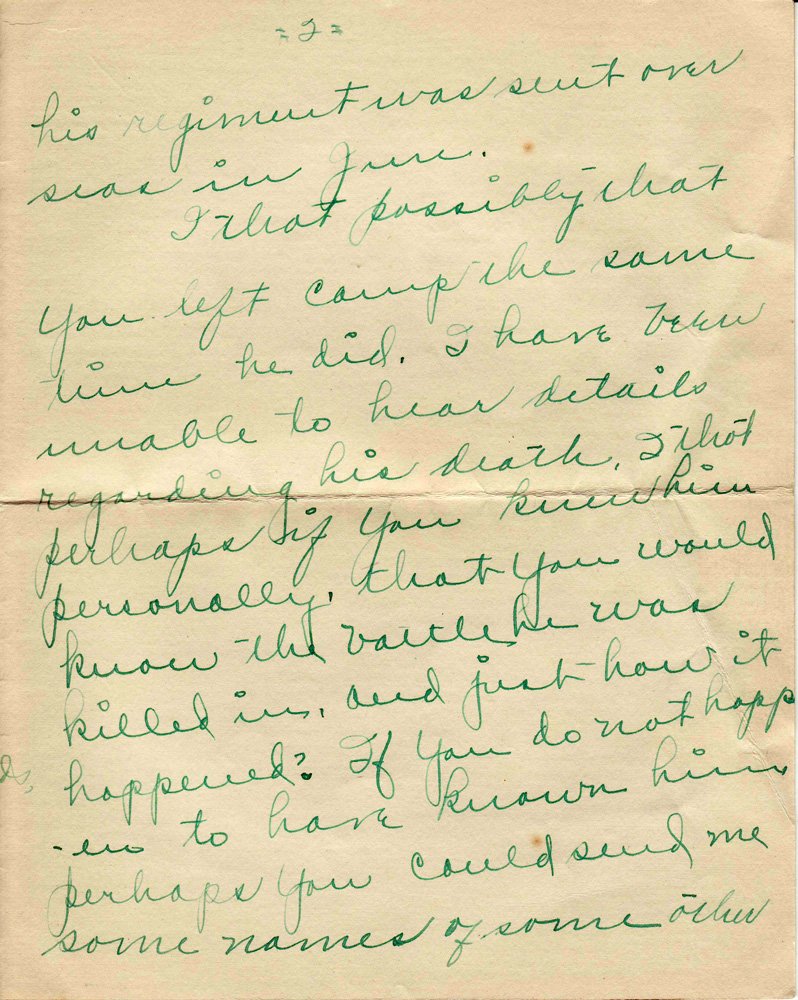 =2=
his regiment was sent over
seas in June.
I that possibly that
you left camp the same
time he did. I have been
unable to hear details
regarding his death. I that
perhaps if you knew him
personally, that you would
know the battle he was
killed in, and just how it
happened? If you do not happ
-en to have known him
perhaps you could send me
some names of some other